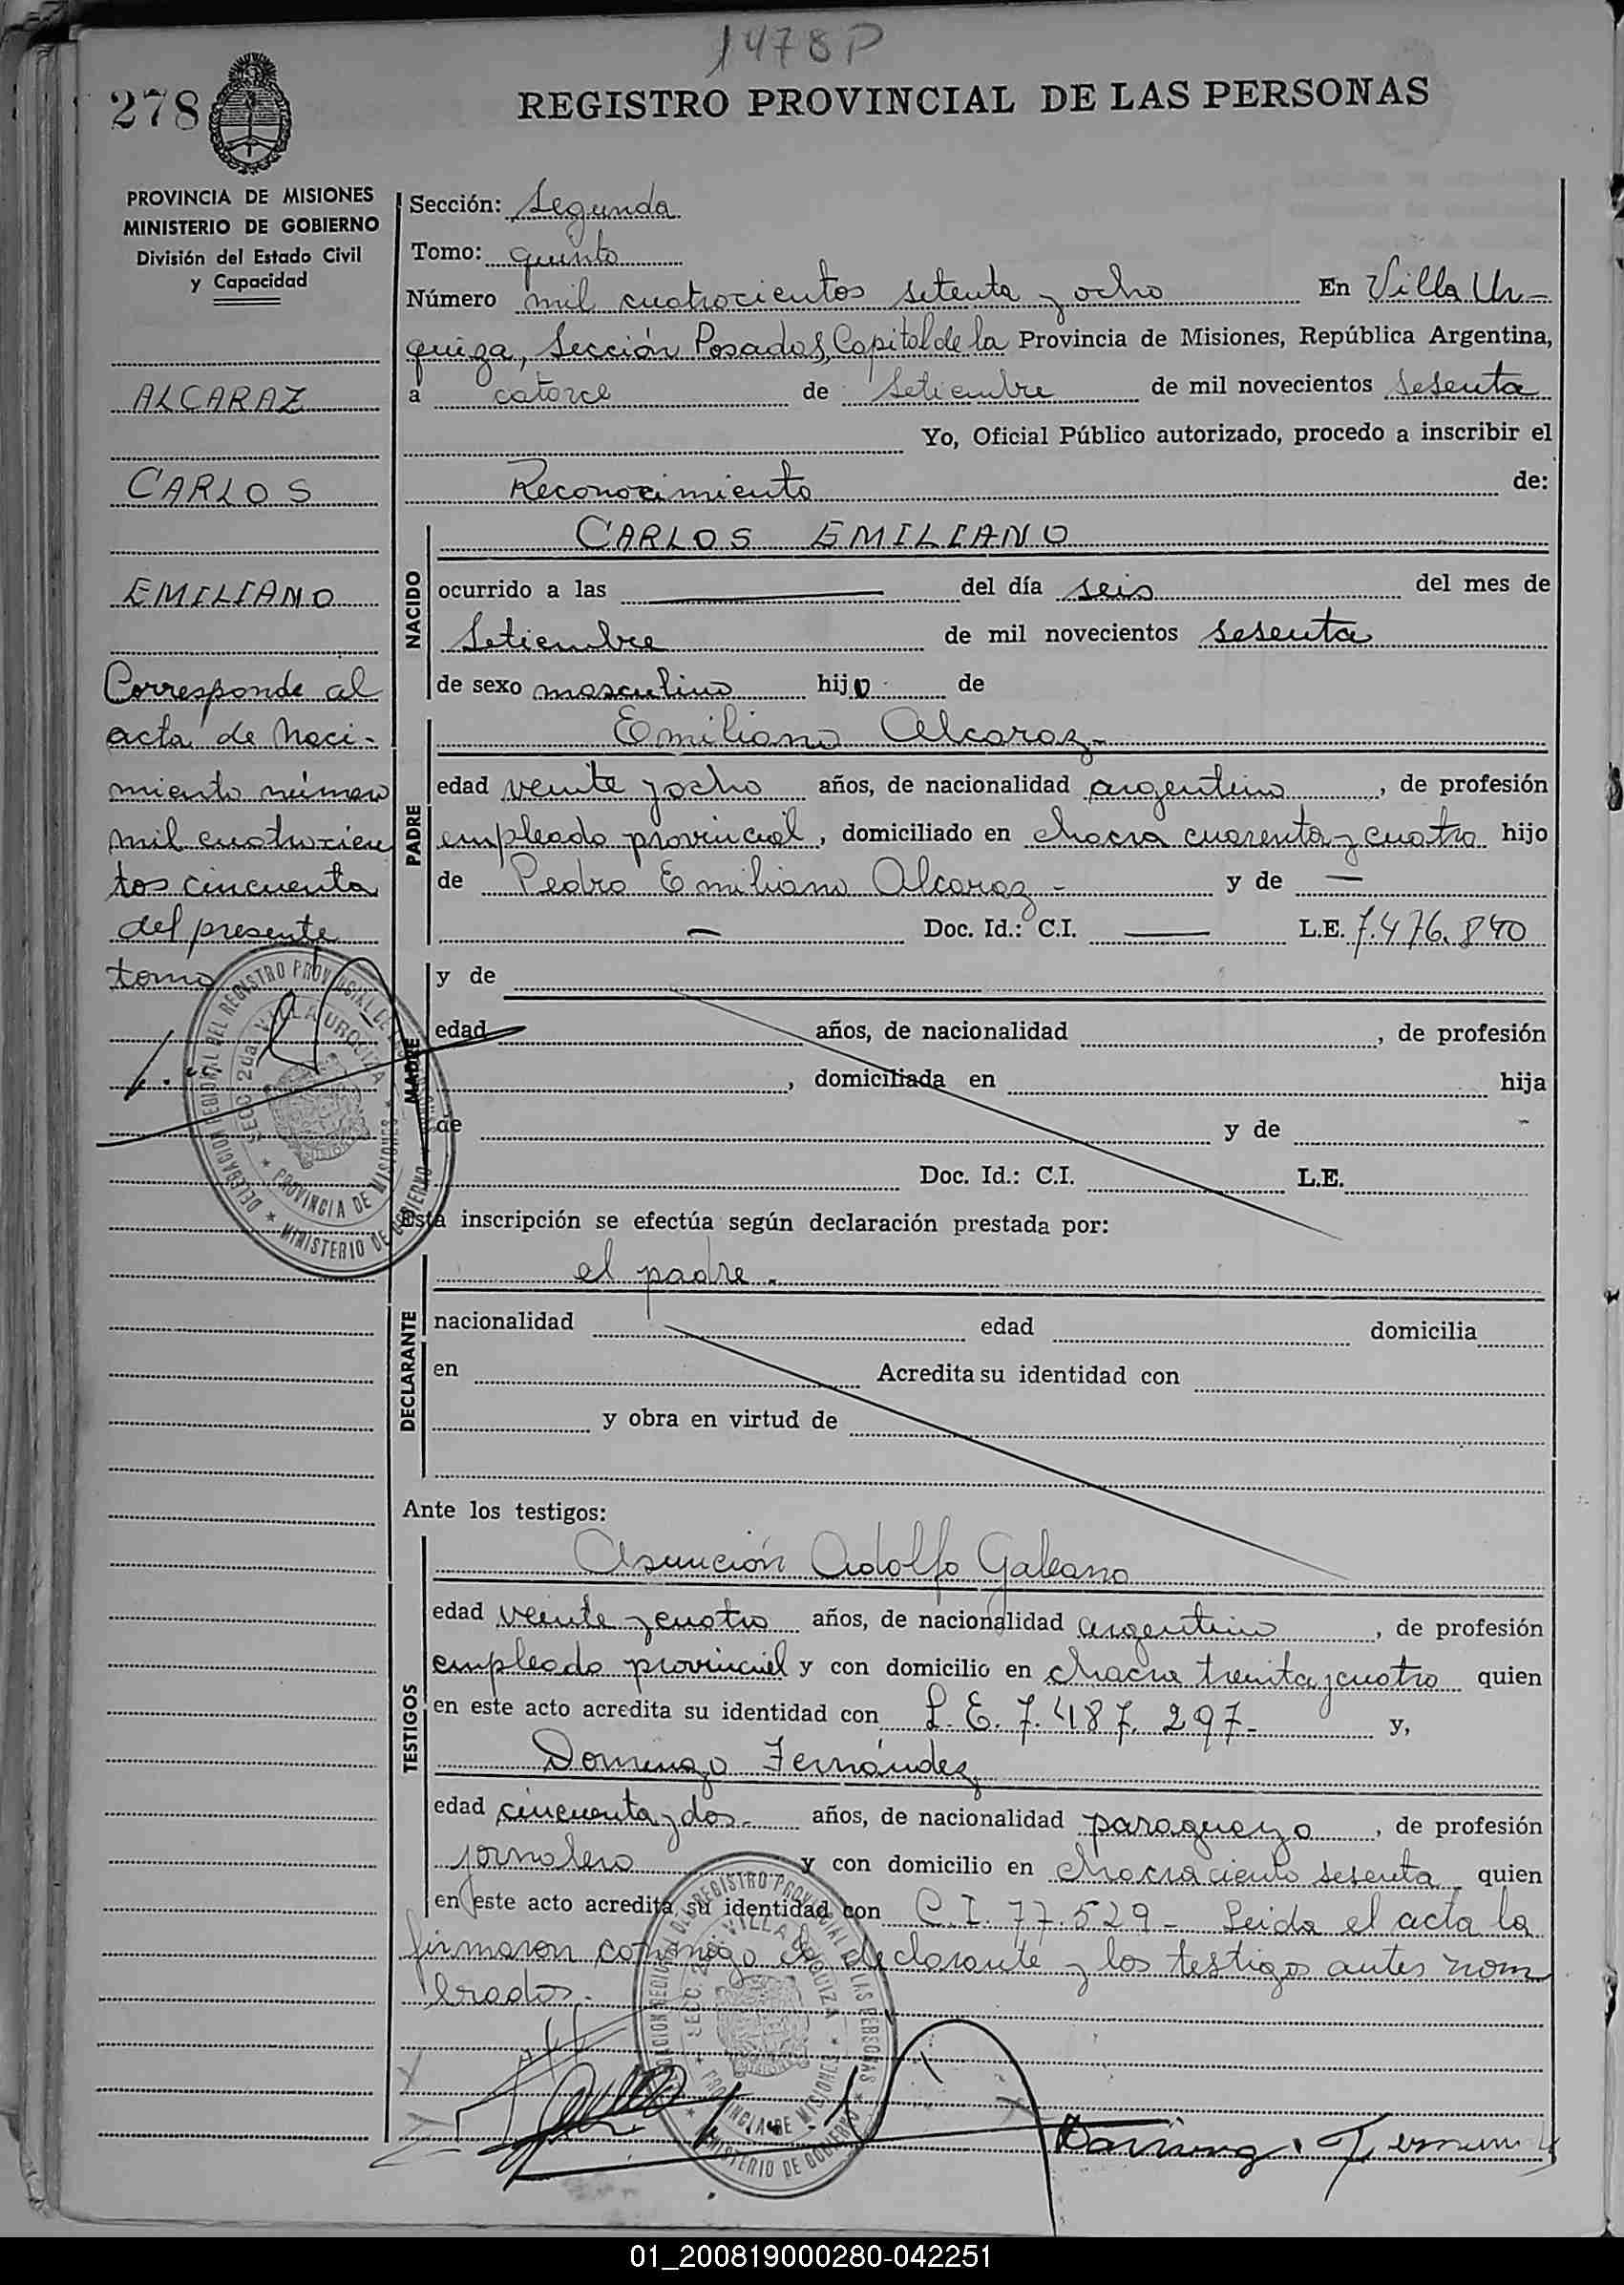 1478 P
278
REGISTRO PROVINCIAL DE LAS PERSONAS
PROVINCIA DE MISIONES
MINISTERIO DE GOBIERNO
División del Estado Civil
y Capacidad
ALCARAZ
CARLOS
EMILIANO
Corresponde al
acta de Naci-
miento número
mil cuatrocien
tos cincuenta
del presente
tomo
Sección: Segunda
Tomo: quinto
Número mil cuatrocientos setenta y ocho En Villa Ur-
quiza, Sección Posadas, Capital de la Provincia de Misiones, República Argentina,
a catorce de Setiembre de mil novecientos sesenta
Yo, Oficial Público autorizado, procedo a inscribir el
Reconocimiento de:
NACIDO
CARLOS EMILIANO
ocurrido a las del día seis del mes de
Setiembre de mil novecientos sesenta
de sexo masculino hijo de
PADRE
Emiliano Alcaraz-
edad veinte y ocho años, de nacionalidad argentino, de profesión
empleado provincial, domiciliado en chacra cuarenta y cuatro hijo
de Pedro Emiliano Alcaraz - y de —
— Doc. Id.: C.I. — L.E. 7.476.840
MADRE
y de
edad años, de nacionalidad , de profesión
, domiciliada en hija
de y de
Doc. Id.: C.I. L.E.
Esta inscripción se efectúa según declaración prestada por:
DECLARANTE
el padre.
nacionalidad edad domicilia
en Acredita su identidad con
y obra en virtud de
Ante los testigos:
TESTIGOS
Asunción Adolfo Galeano
edad veinte y cuatro años, de nacionalidad argentino, de profesión
empleado provincial y con domicilio en chacra treinta y cuatro quien
en este acto acredita su identidad con L.E. 7.487.297- y,
Domingo Fernández
edad cincuenta y dos- años, de nacionalidad paraguayo, de profesión
jornalero y con domicilio en chacra ciento sesenta quien
en este acto acredita su identidad con C.I. 77.529- Leida el acta la
firmaron conmigo el declarante y los testigos antes nom
brados.-
DELEGACION REGIONAL DEL REGISTRO PROVINCIAL DE LAS PERSONAS
SECC. 2da. VILLA URQUIZA
PROVINCIA DE MISIONES
MINISTERIO DE GOBIERNO
01_200819000280-042251